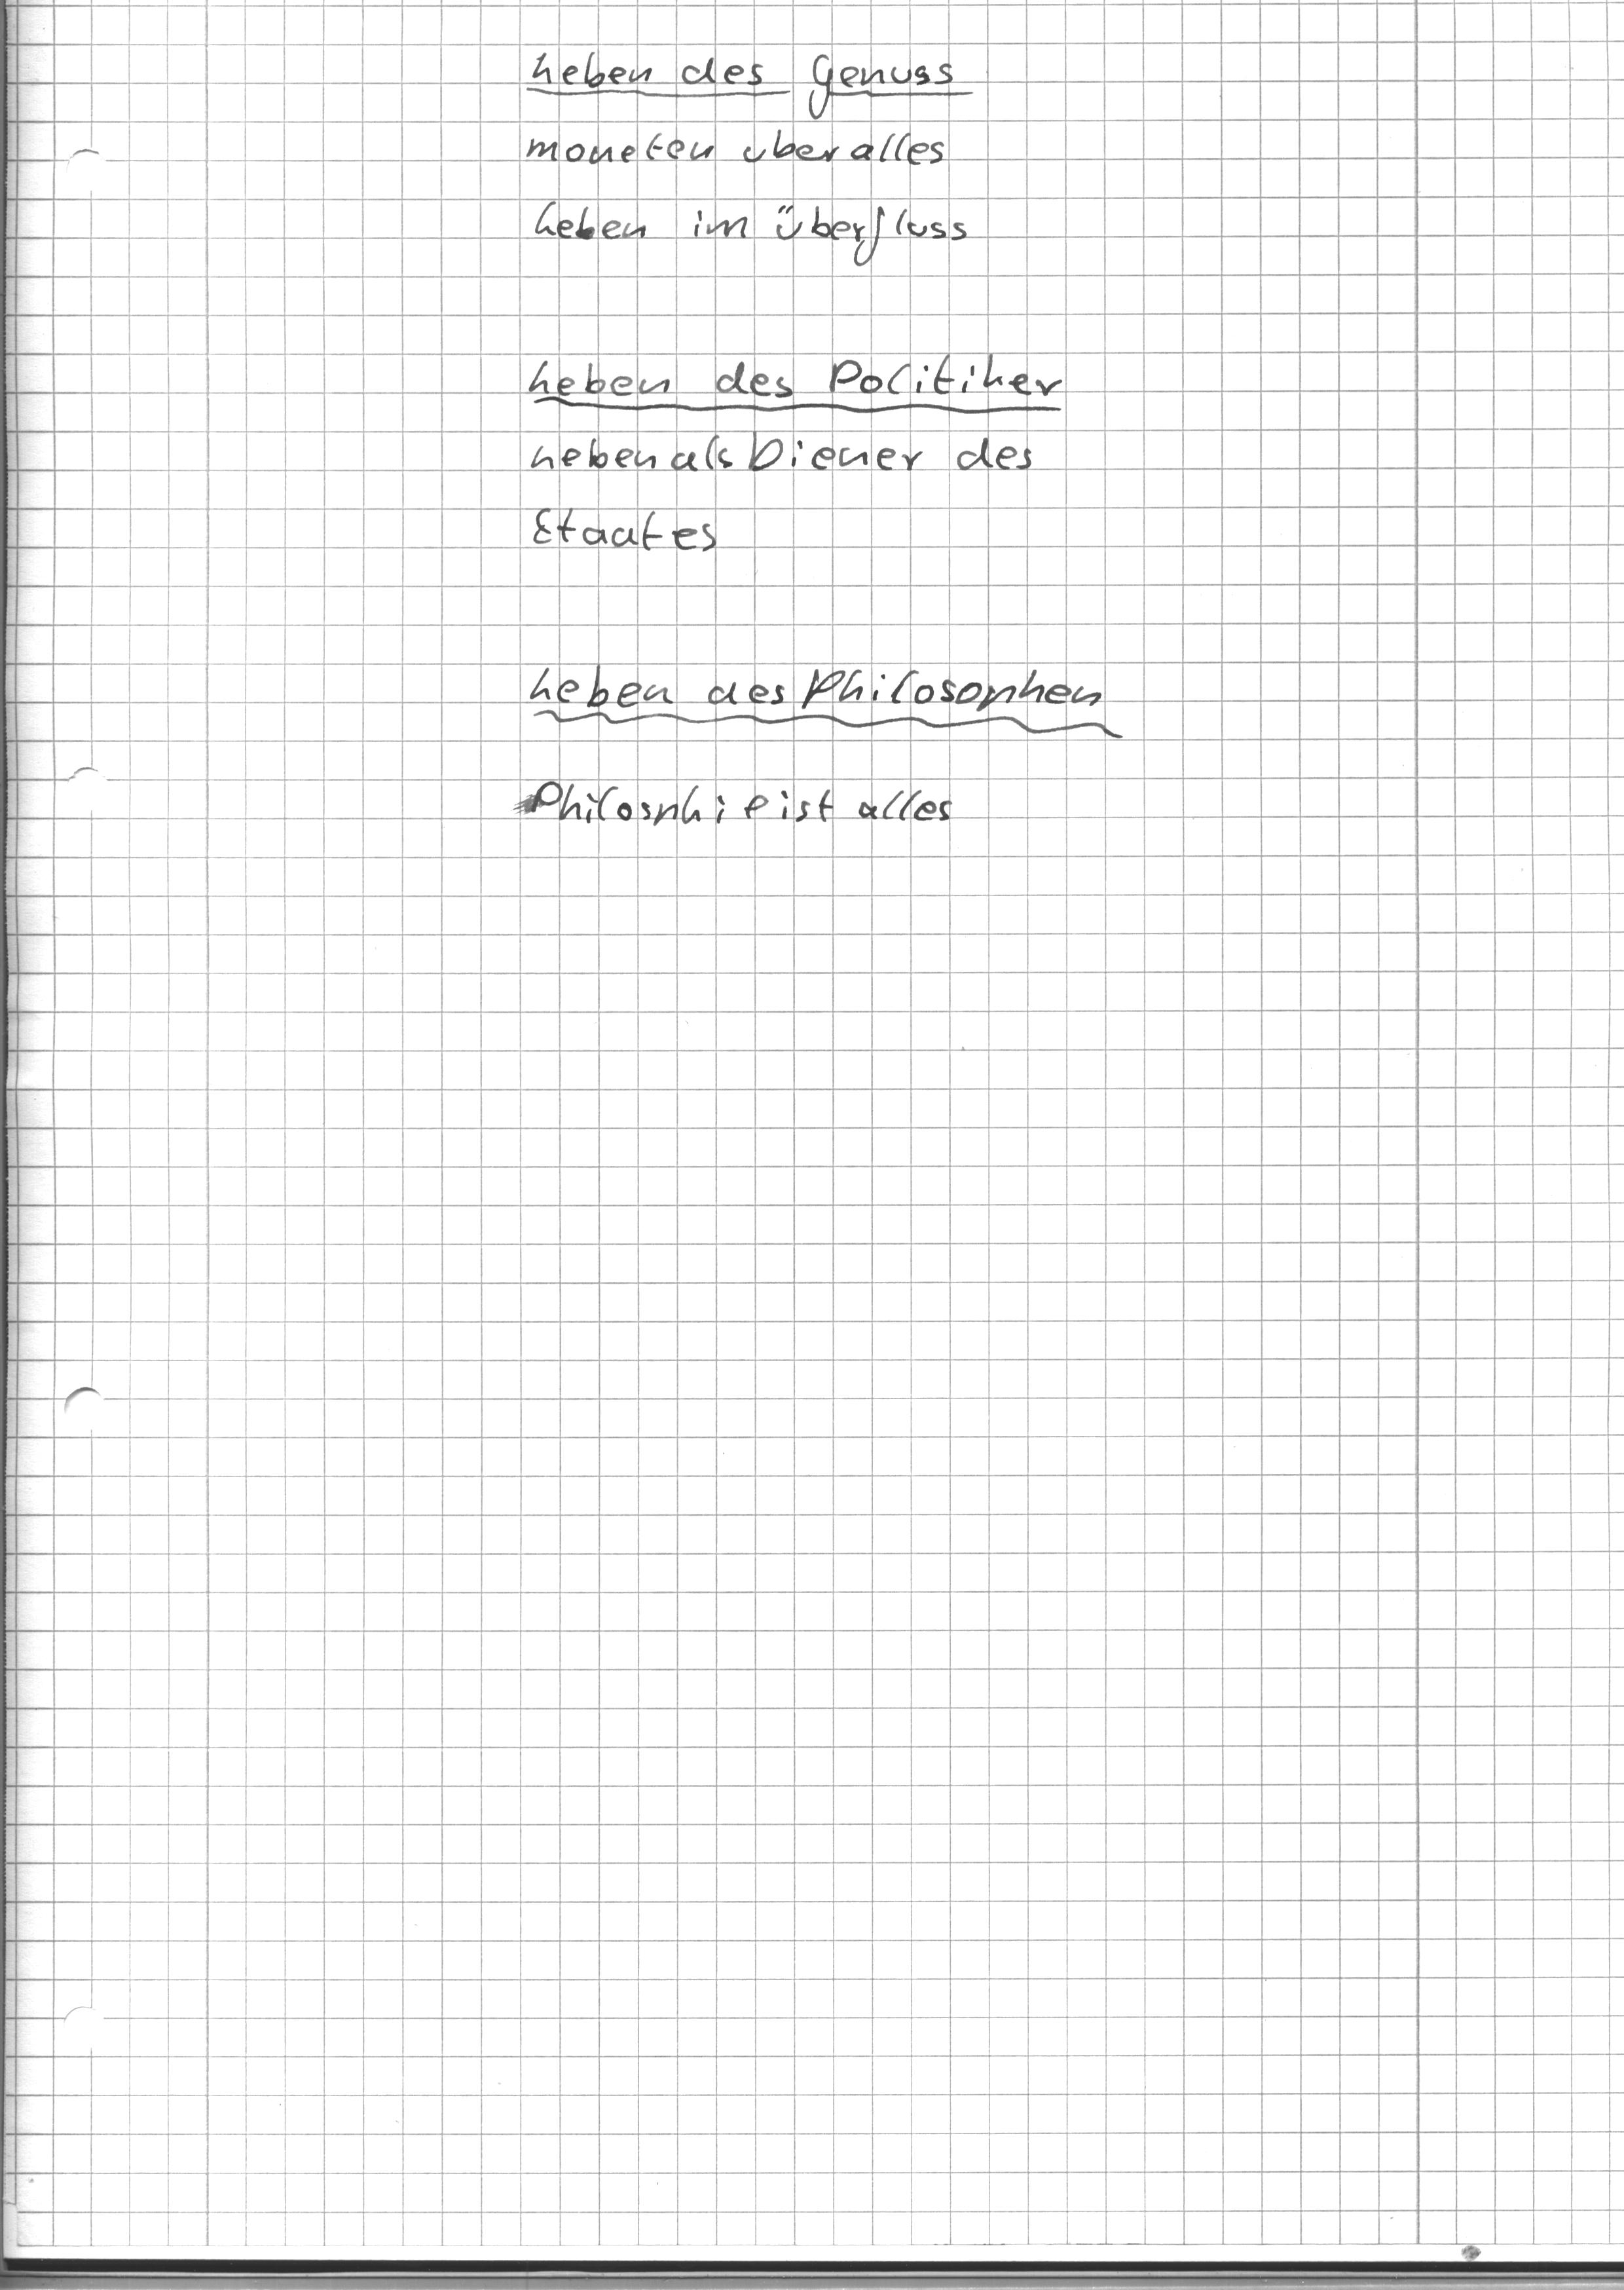 Leben des Genuss
moneten über alles
Leben im Überfluss
Leben des Politiker
Leben als Diener des
Staates
Leben des Philosophen
Philosphie ist alles